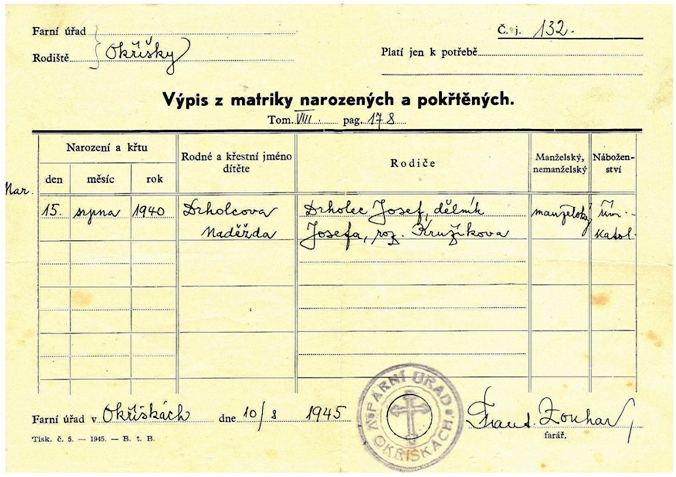 Farní úřad
Č. j. 132.
Rodiště Okříšky
Platí jen k potřebě
Výpis z matriky narozených a pokřtěných.
Tom. VIII. pag. 178
Narození a křtu
den měsíc rok
Rodné a křestní jméno dítěte
Rodiče
Manželský, nemanželský
Nábožen-
ství
Nar.
15. srpna 1940 Drholcova Drholec Josef, dělník manželský řím.-
Naděžda Josefa, roz. Kružíkova katol.
Farní úřad v Okříškách dne 10/8 1945
Frant. Zouhar,
farář.
FARNÍ ÚŘAD V OKŘÍŠKÁCH
Tisk. č. 5. — 1945. — B. t. B.